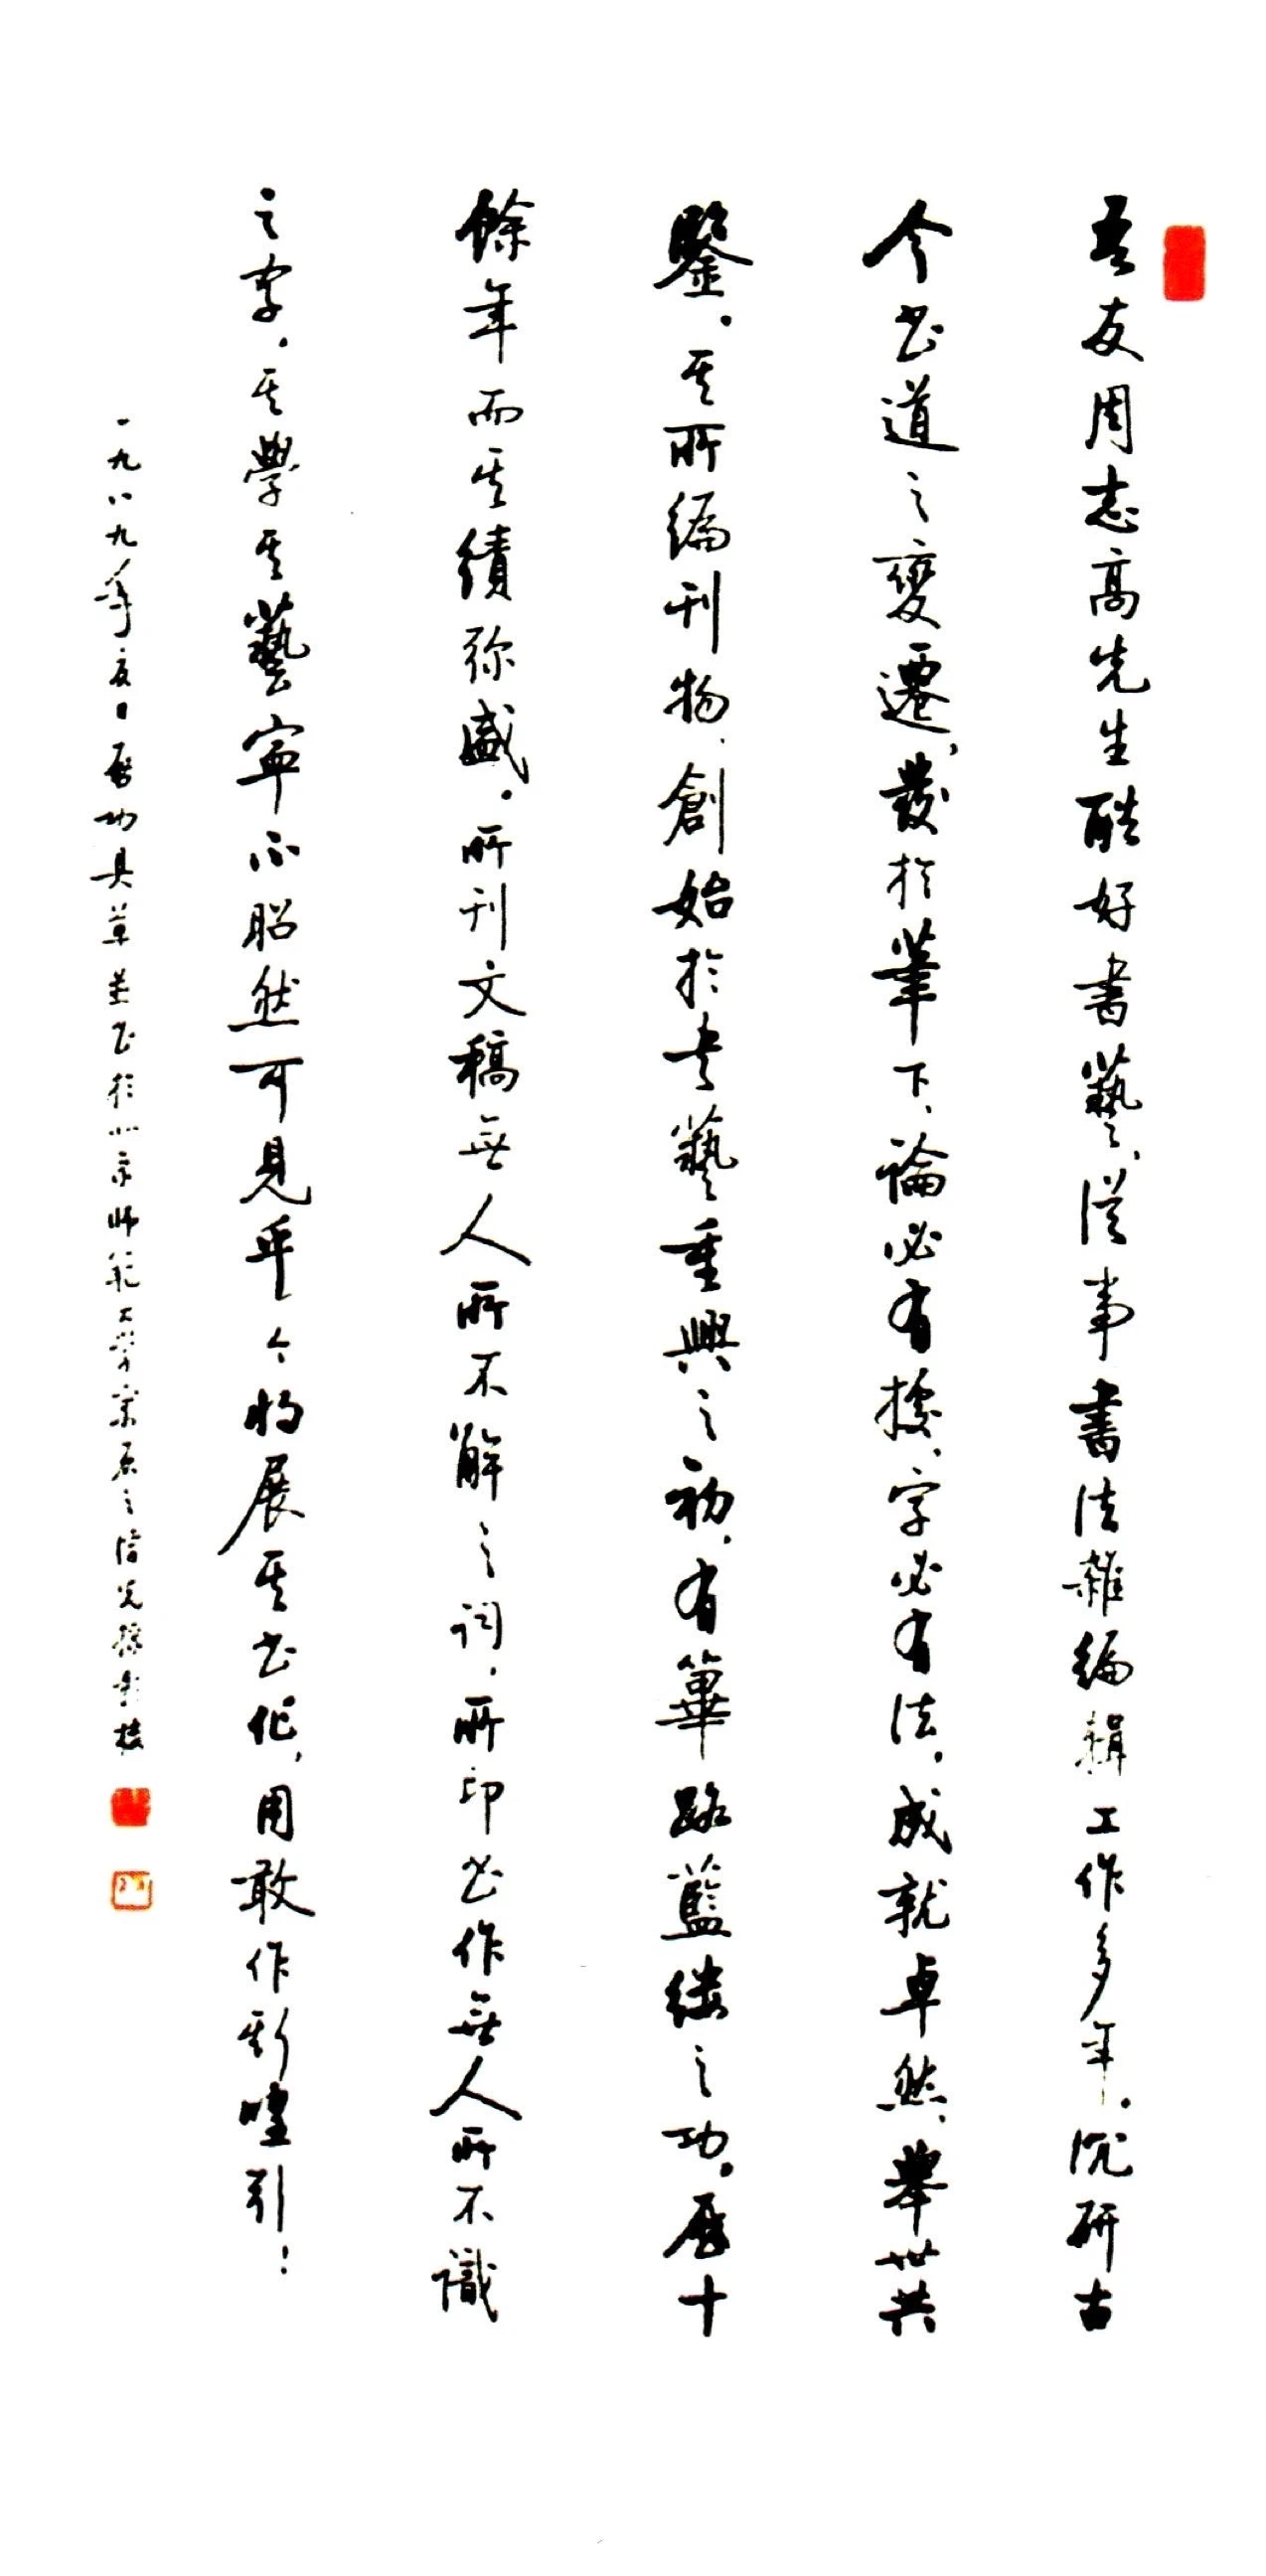 吾友周志高先生酷好書藝、從事書法雜編輯工作多年。沉研古
今书道之變遷，發於筆下、論必有據、字必有法，成就卓然、舉世共
鑒。其所編刊物、創始於书藝重興之初，有篳路藍縷之功。歷十
餘年而其績弥盛。所刊文稿無人所不解之詞，所印书作無人所不識
之字，其學其藝寧不昭然可見乎今将展其书作，用敢作斯喤引！
一九八九年夏日啟功具草並书於北京師範大學